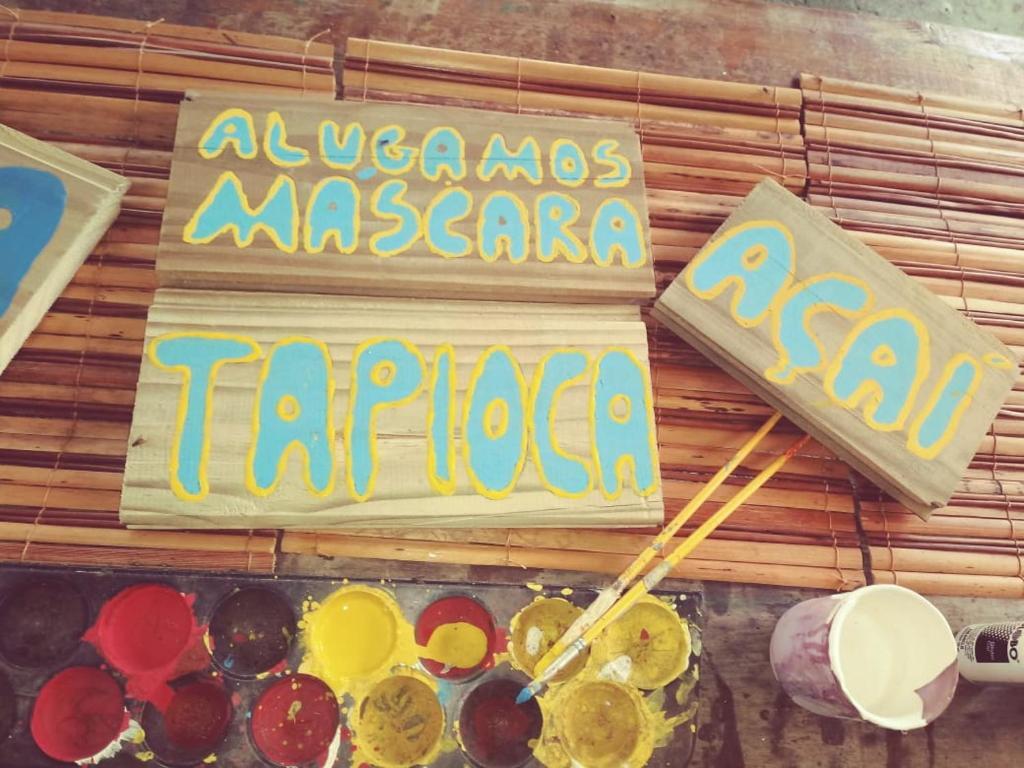 ALUGAMOS
MÁSCARA
TAPIOCA
AÇAÍ